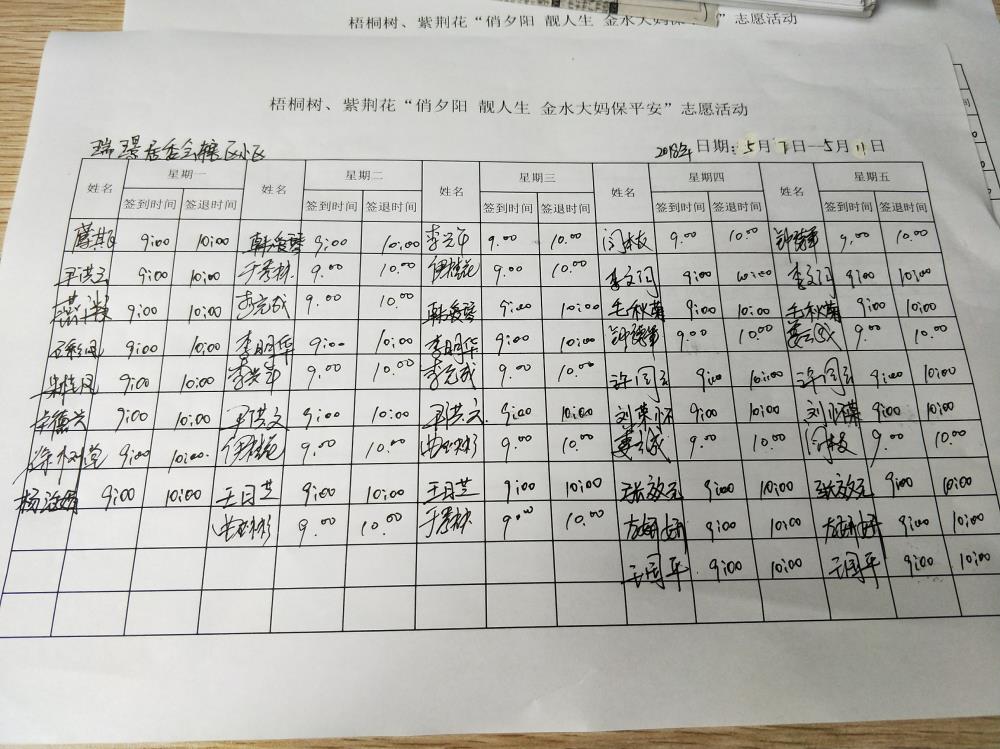 梧桐树、紫荆花“俏夕阳 靓人生 金水大妈保 ”志愿活动
梧桐树、紫荆花“俏夕阳 靓人生 金水大妈保平安”志愿活动
瑞璟居委会辖区小区 2018年 日期:5月7日—5月11日
姓名 星期一 姓名 星期二 姓名 星期三 姓名 星期四 姓名 星期五
签到时间 签退时间 签到时间 签退时间 签到时间 签退时间 签到时间 签退时间 签到时间 签退时间
9:00 10:00 韩爱琴 9:00 10:00 李兴军 9.00 10.00 闫枝 9.00 10.00 9.00 10.00
平洪文 9:00 10:00 于秀林 9.00 10.00 伊桂花 9.00 10.00 李文闫 9:00 10:00 李文闫 9:00 10:00
9:00 10:00 李克成 9.00 10.00 韩爱琴 9:00 10:00 毛秋菊 9:00 10:00 毛秋菊 9:00 10:00
9:00 10:00 李明华 9:00 10:00 李明华 9:00 10:00 9.00 10.00 9.00 10.00
9:00 10:00 李兴军 9.00 10.00 李克成 9.00 10.00 许闰云 9:00 10:00 许闰云 9:00 10:00
9:00 10:00 平洪文 9:00 10:00 平洪文 9:00 10:00 刘荣怀 9:00 10:00 9:00 10:00
徐树堂 9:00 10:00 伊桂花 9.00 10.00 9.00 10.00 9.00 10.00 闫枝 9.00 10.00
9:00 10:00 王日芝 9:00 10:00 王日芝 9:00 10:00 张效元 9:00 10:00 张效元 9:00 10:00
9.00 10.00 于秀林 9.00 10.00 9:00 10:00 9:00 10:00
王国平 9:00 10:00 王国平 9:00 10:00